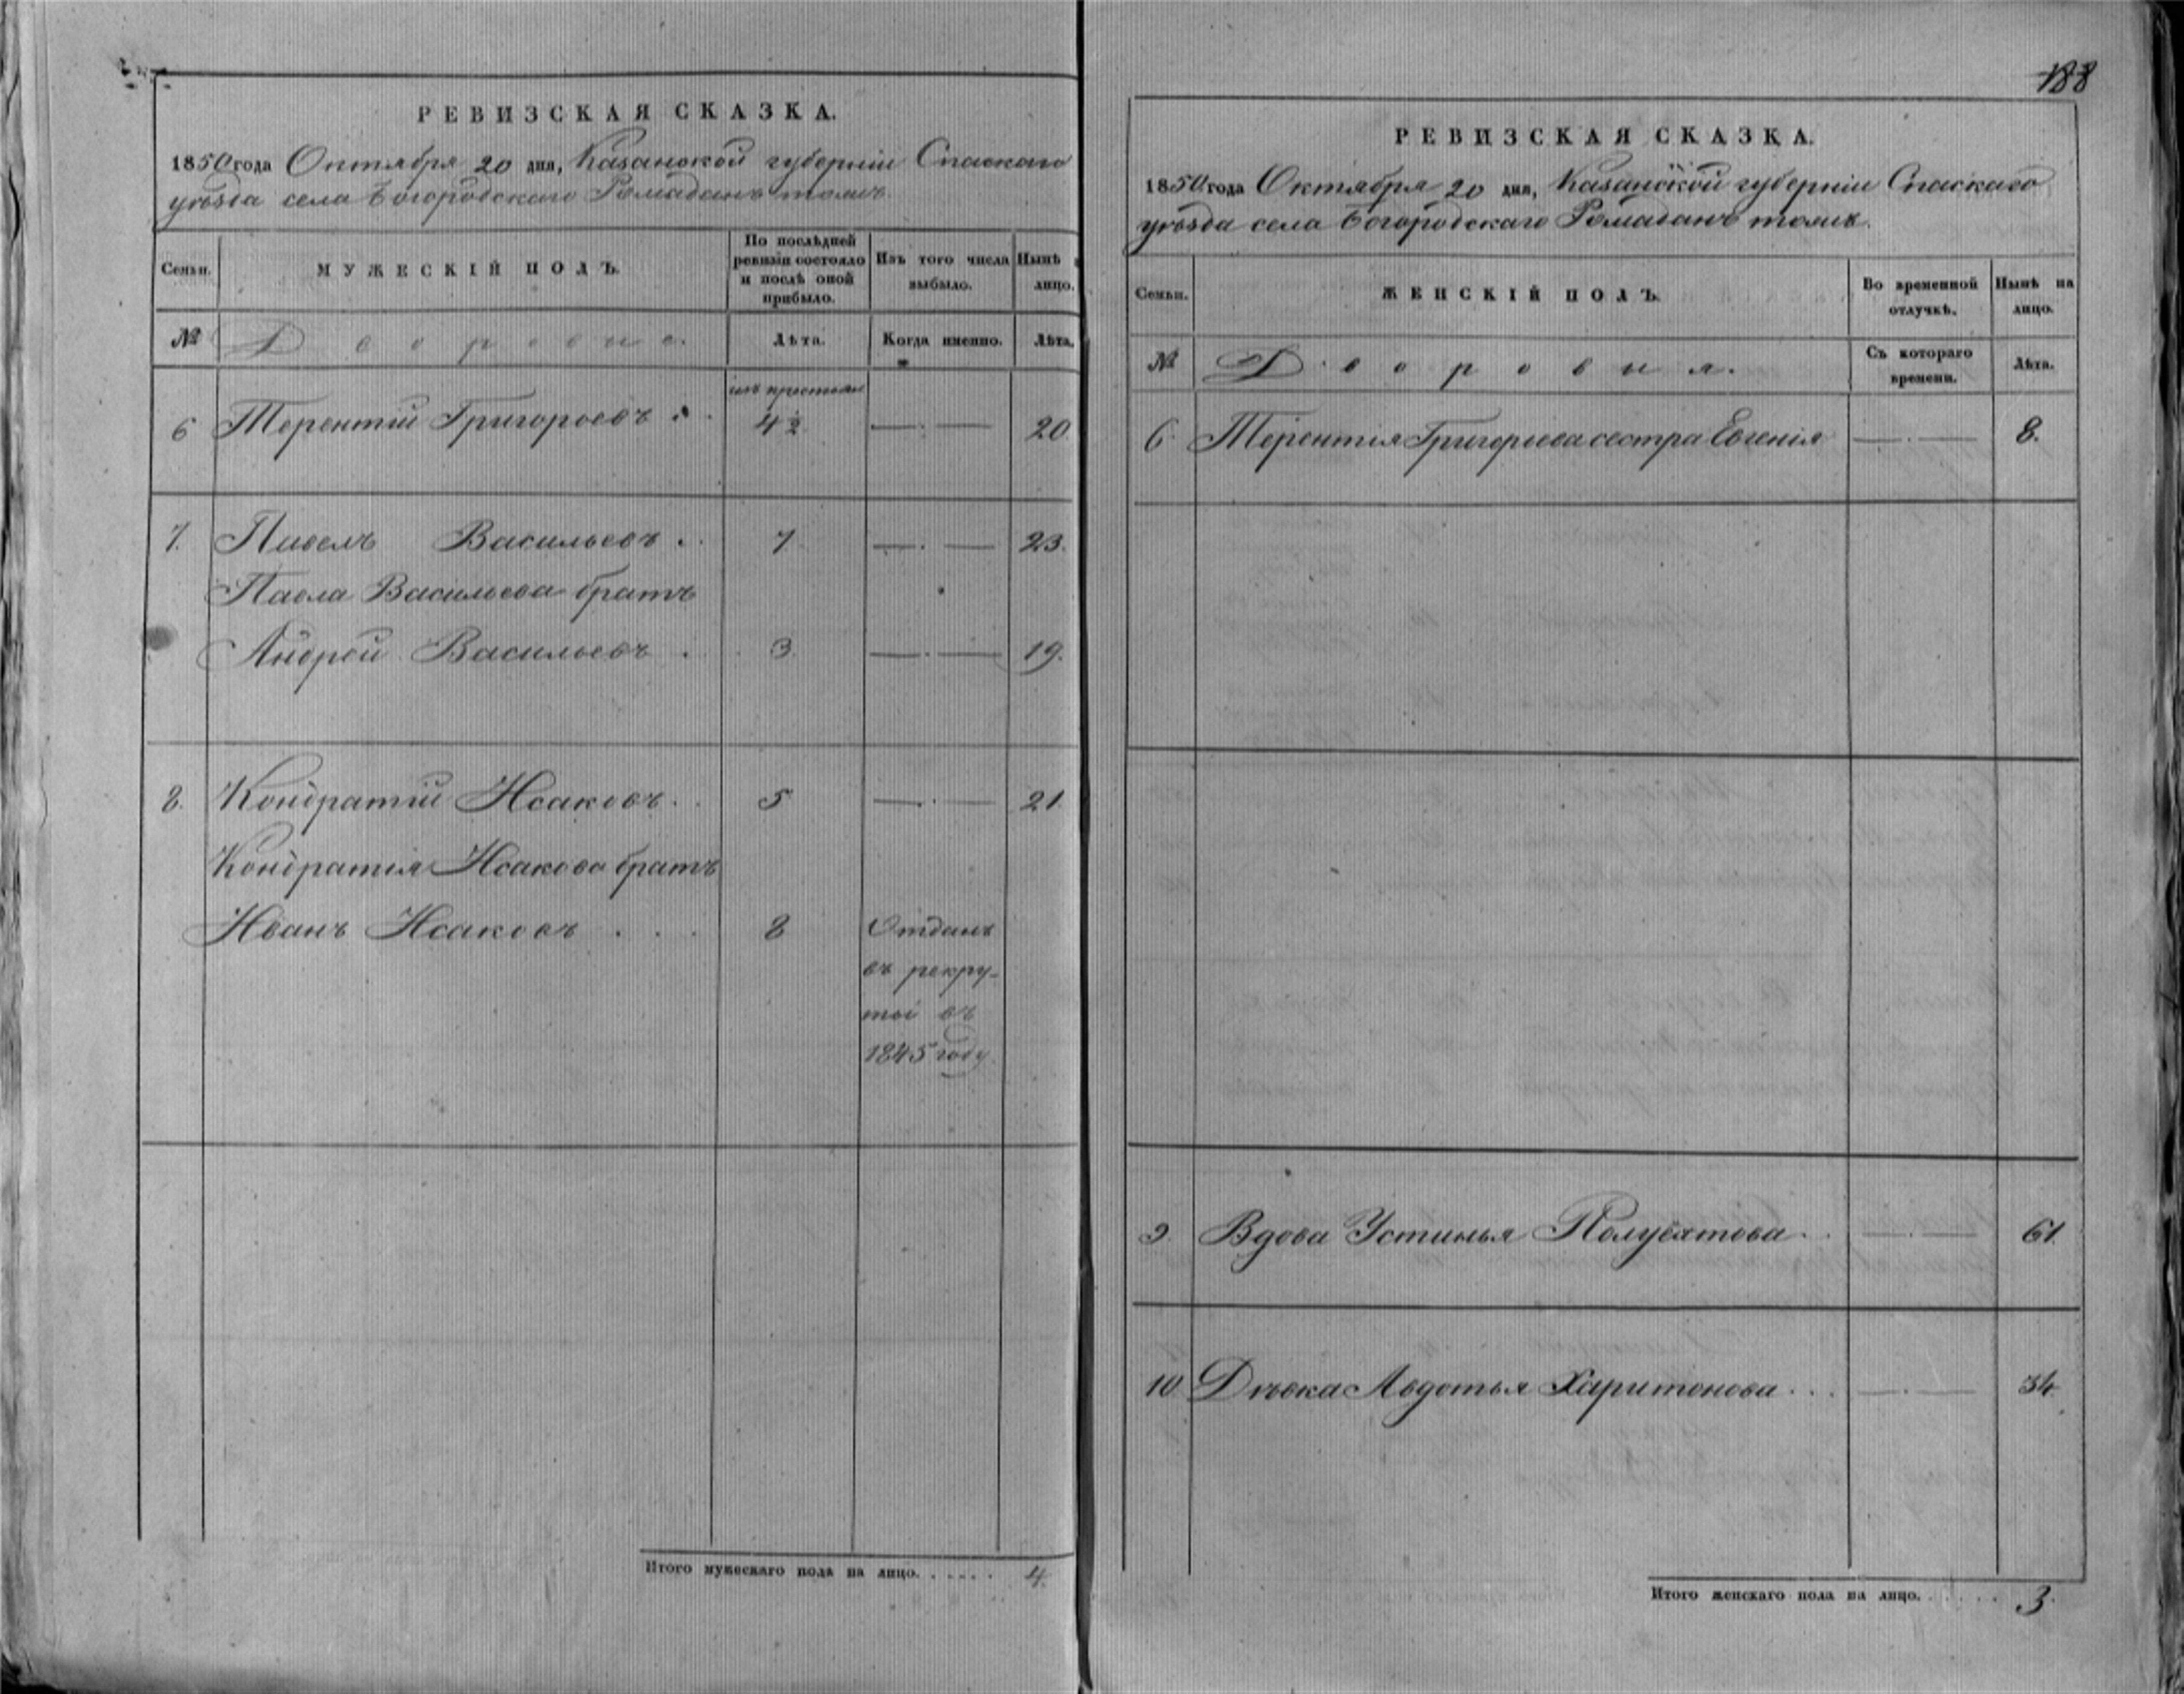 РЕВИЗСКАЯ СКАЗКА.
1850 года Октября 20 дня, Казанской губерніи Спаскаго
уѣзда села Богородскаго Ромаданъ тожъ.
Семьи.
МУЖЕСКІЙ ПОЛЪ.
По послѣдней
ревизіи состояло
и послѣ оной
прибыло.
Изъ того числа
выбыло.
Нынѣ
лицо.
№
Дворовые.
Лѣта.
Когда именно.
Лѣта.
изъ крестьян
6 Терентій Григорьевъ . . 4 1/2 —.— 20
7. Павелъ Васильевъ . . 7 —.— 23.
Павла Васильева братъ
Андрей Васильевъ . . 3 —.— 19.
8. Кондратій Исаковъ . . 5 —.— 21.
Кондратія Исакова братъ
Иванъ Исаковъ . . . 8 Отданъ
въ рекру-
ты въ
1845 году.
Итого мужескаго пола на лицо. . . . . . 4.
188
РЕВИЗСКАЯ СКАЗКА.
1850 года Октября 20 дня, Казанской губерніи Спаскаго
уѣзда села Богородскаго Ромаданъ тожъ.
Семьи.
ЖЕНСКІЙ ПОЛЪ.
Во временной
отлучкѣ.
Нынѣ на
лицо.
№
Дворовыя.
Съ котораго
времени.
Лѣта.
6. Терентія Григорьева сестра Евгенія —.— 8.
9. Вдова Устинья Полуехтова . . —.— 61.
10 Дѣвка Авдотья Харитонова . . . —.— 34.
Итого женскаго пола на лицо. . . . . . 3.